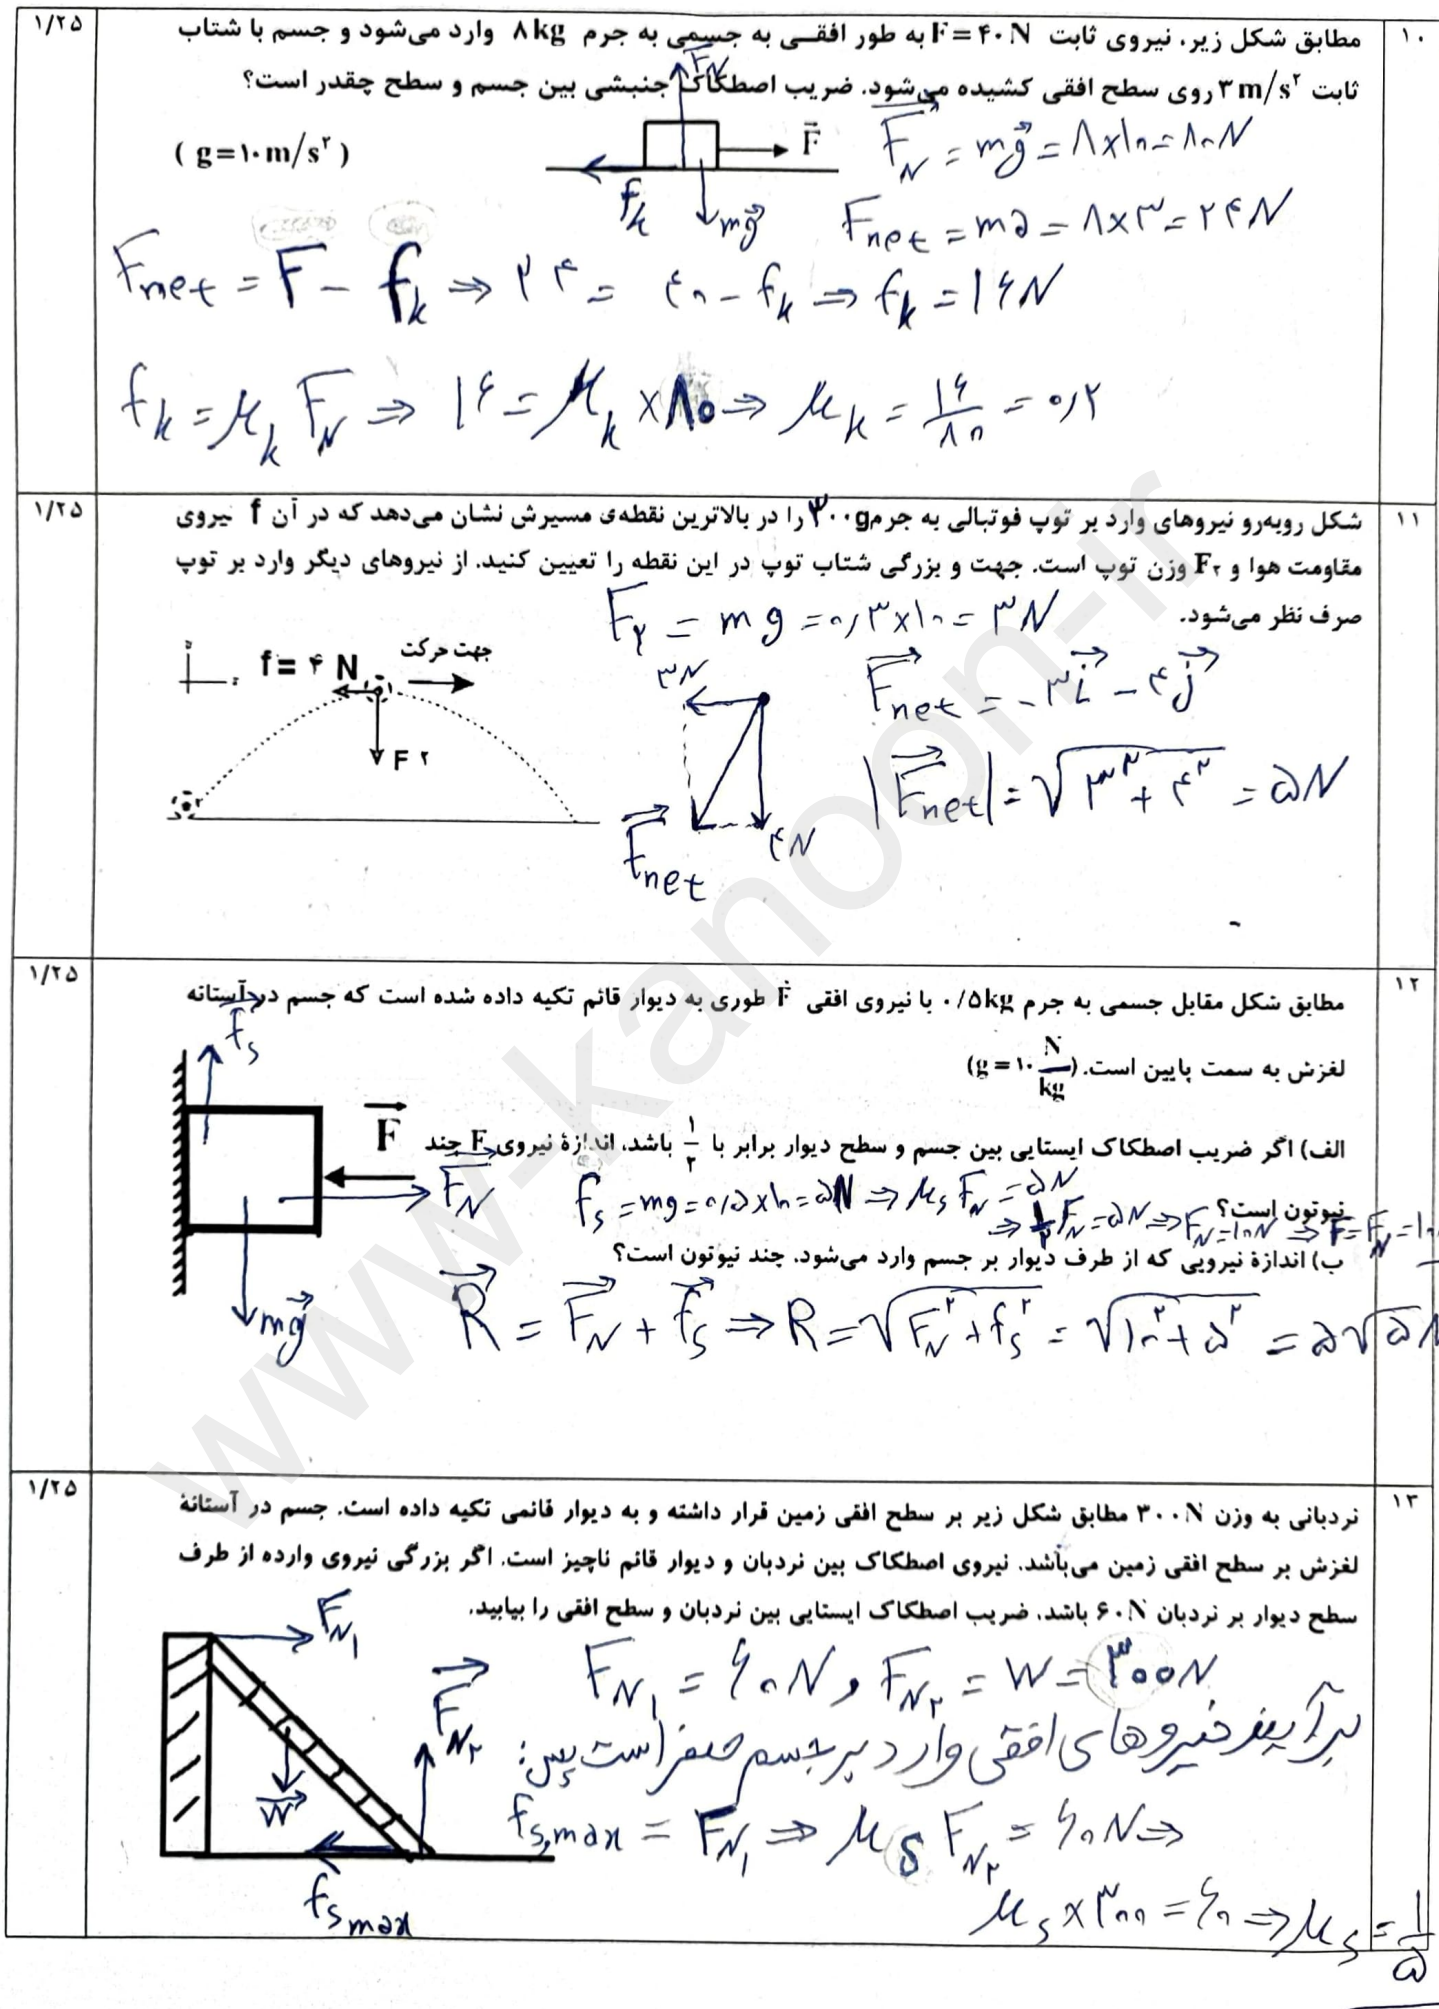 ۱۰
۱/۲۵
مطابق شکل زیر، نیروی ثابت F=۴۰N به طور افقی به جسمی به جرم ۸kg وارد می‌شود و جسم با شتاب
ثابت ۳ m/s۲ روی سطح افقی کشیده می‌شود. ضریب اصطکاک جنبشی بین جسم و سطح چقدر است؟
(g=۱۰m/s۲)
FN
F
fk
mg
FN = mg = ۸×۱۰ = ۸۰N
Fnet = ma = ۸×۳ = ۲۴N
Fnet = F - fk ⇒ ۲۴ = ۴۰ - fk ⇒ fk = ۱۶N
fk = μk FN ⇒ ۱۶ = μk × ۸۰ ⇒ μk = ۱۶/۸۰ = ۰٫۲
۱۱
۱/۲۵
شکل روبه‌رو نیروهای وارد بر توپ فوتبالی به جرم ۳۰۰g را در بالاترین نقطه‌ی مسیرش نشان می‌دهد که در آن f نیروی
مقاومت هوا و F۲ وزن توپ است. جهت و بزرگی شتاب توپ در این نقطه را تعیین کنید. از نیروهای دیگر وارد بر توپ
صرف نظر می‌شود.
F۲ = mg = ۰٫۳×۱۰ = ۳N
جهت حرکت
f = ۴ N
F ۲
۳N
۴N
Fnet
Fnet = -۳i - ۴j
|Fnet| = √۳۲ + ۴۲ = ۵N
۱۲
۱/۲۵
مطابق شکل مقابل جسمی به جرم ۰/۵kg با نیروی افقی F طوری به دیوار قائم تکیه داده شده است که جسم در آستانه
لغزش به سمت پایین است. (g=۱۰ N/kg)
fs
F
FN
mg
الف) اگر ضریب اصطکاک ایستایی بین جسم و سطح دیوار برابر با ۱/۲ باشد، اندازهٔ نیروی F چند
نیوتون است؟
fs = mg = ۰٫۵×۱۰ = ۵N ⇒ μs FN = ۵N
⇒ ۱/۲ FN = ۵N ⇒ FN = ۱۰N ⇒ F = FN = ۱۰
ب) اندازهٔ نیرویی که از طرف دیوار بر جسم وارد می‌شود، چند نیوتون است؟
R = FN + fs ⇒ R = √FN۲ + fs۲ = √۱۰۲ + ۵۲ = ۵√۵ N
۱۳
۱/۲۵
نردبانی به وزن ۳۰۰N مطابق شکل زیر بر سطح افقی زمین قرار داشته و به دیوار قائمی تکیه داده است. جسم در آستانهٔ
لغزش بر سطح افقی زمین می‌باشد. نیروی اصطکاک بین نردبان و دیوار قائم ناچیز است. اگر بزرگی نیروی وارده از طرف
سطح دیوار بر نردبان ۶۰N باشد، ضریب اصطکاک ایستایی بین نردبان و سطح افقی را بیابید.
FN۱
FN۲
W
fs max
FN۱ = ۶۰N و FN۲ = W = ۳۰۰N
برآیند نیروهای افقی وارد بر جسم صفر است پس:
fs,max = FN۱ ⇒ μs FN۲ = ۶۰N ⇒
μs × ۳۰۰ = ۶۰ ⇒ μs = ۱/۵
www-kanoon-ir